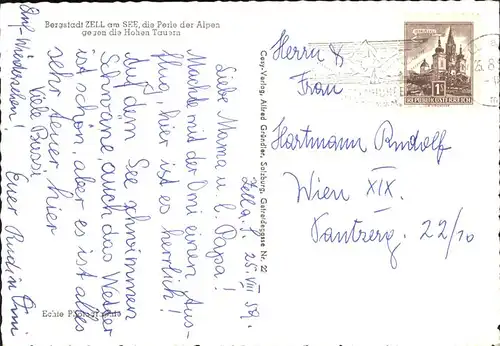 Bergstadt ZELL am SEE, die Perle der Alpen
gegen die Hohen Tauern
Zell a. S. 25. VIII 59.
Liebe Mama u. l. Papa!
Machte mit der Omi einen Aus-
flug, hier ist es herrlich!
Auf dem See schwimmen
Schwäne, auch das Wetter
ist schön, aber es ist alles
sehr teuer, hier
Viele Bussi
Euer Rudi u. Omi
Auf Wiedersehen!
Echte Photographie
Cosy-Verlag, Alfred Gründler, Salzburg, Getreidegasse Nr. 22
1S
REPUBLIK ÖSTERREICH
Herrn &
Frau
Hartmann Rudolf
Wien XIX.
22/10